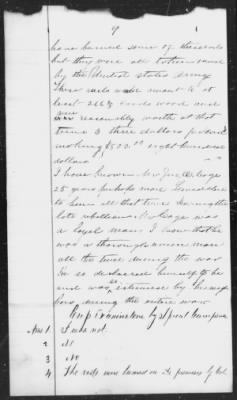 9
have burned some of these rails
but they were all taken
by the United States Army
These rails would amount to at
least 266⅔ cords wood and
were reasonably worth at that
time 3 three dollars per cord
making $800.00 eight hundred
dollars
I have known Mr Jno Cage
25 years perhaps more. Lived close
to him all that time. During the
late rebellion Mr Cage was
a loyal man. I know that he
was a thorough union man
all the time during the war
He so declared himself to be
and was so esteemed by his neigh
bors during the entire war
Cross Examination by Special Commissioner
Ans 1 I was not.
2 No
3 No
4 The rails were burned on the premises of